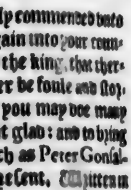 ly commended vnto
ain into your coun-
the king, that ther-
er be foule and stoz-
you may doe many
t glad: and to bying
h as Peter Gonsal-
esent. Written in